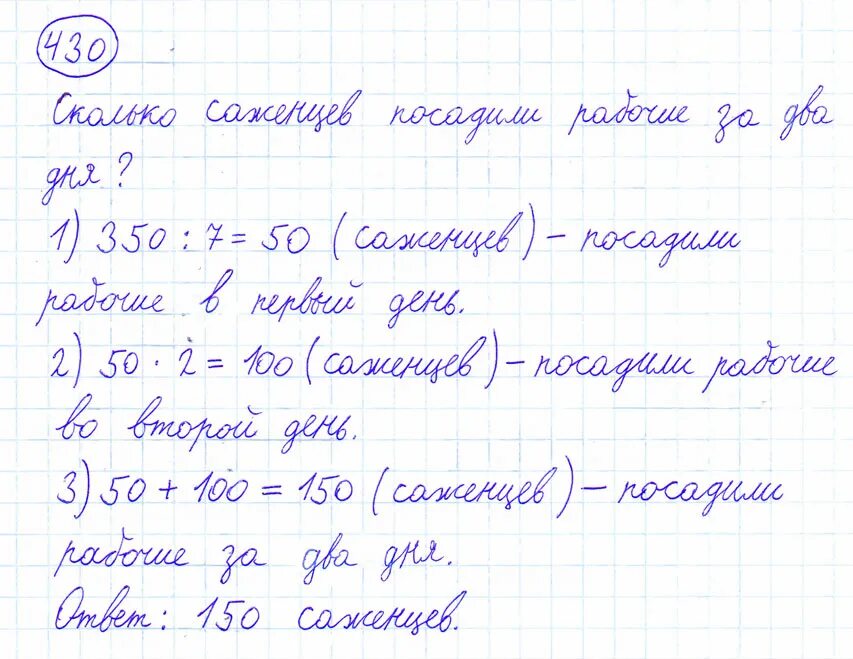 430
Сколько саженцев посадили рабочие за два
дня?
1) 350 : 7 = 50 (саженцев) – посадили
рабочие в первый день.
2) 50 · 2 = 100 (саженцев) – посадили рабочие
во второй день.
3) 50 + 100 = 150 (саженцев) – посадили
рабочие за два дня.
Ответ: 150 саженцев.